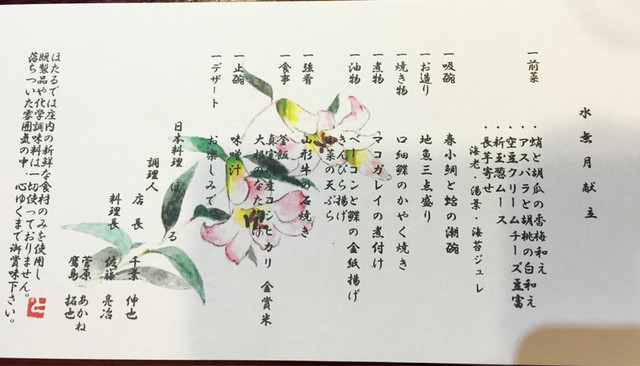 水無月献立
一前菜
・蛸と胡瓜の香梅和え
・アスパラと胡桃の白和え
・空豆クリームチーズ豆富
・新玉葱ムース
・長芋寄せ
海老・湯葉・海苔ジュレ
一吸碗
春小鯛と蛤の潮碗
一お造り
地魚三点盛り
一焼き物
口細鰈のかやく焼き
一煮物
マコガレイの煮付け
一油物
ベーコンと鰈の金紙揚げ
きんぴら揚げ
菜の天ぷら
一強肴
山形牛の石焼き
一食事
釜飯
産コシヒカリ 金賞米
大根
一止碗
味噌汁
一デザート
お楽しみで
日本料理 ほ る
調理人
店長 千葉 伸也
料理長 佐藤 亮治
菅原 あかね
鷹島 拓也
ほたるでは庄内の新鮮な食材のみを使用し
既製品や化学調味料は一切使っておりません。
落ちついた雰囲気の中、心ゆくまで御賞味下さい。